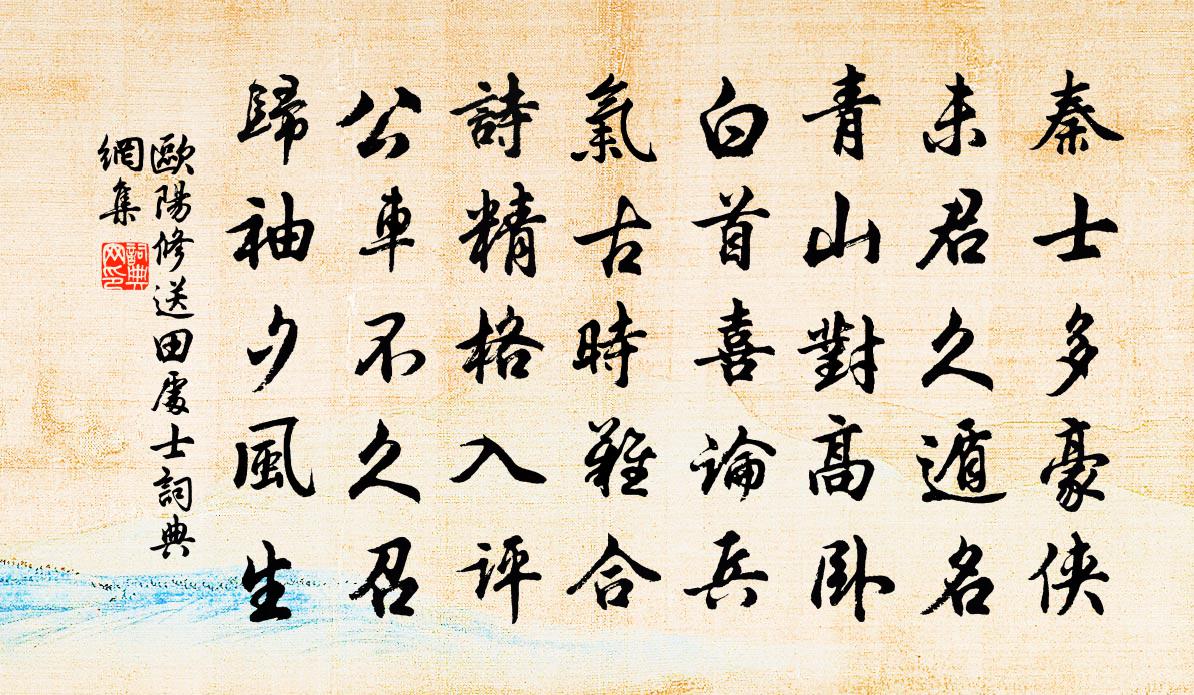 秦士多豪俠
未君久遁名
青山對高臥
白首喜論兵
氣古時難合
詩精格入評
公車不久召
歸袖夕風生
歐陽修送田處士詞典
網集
詞典
网印